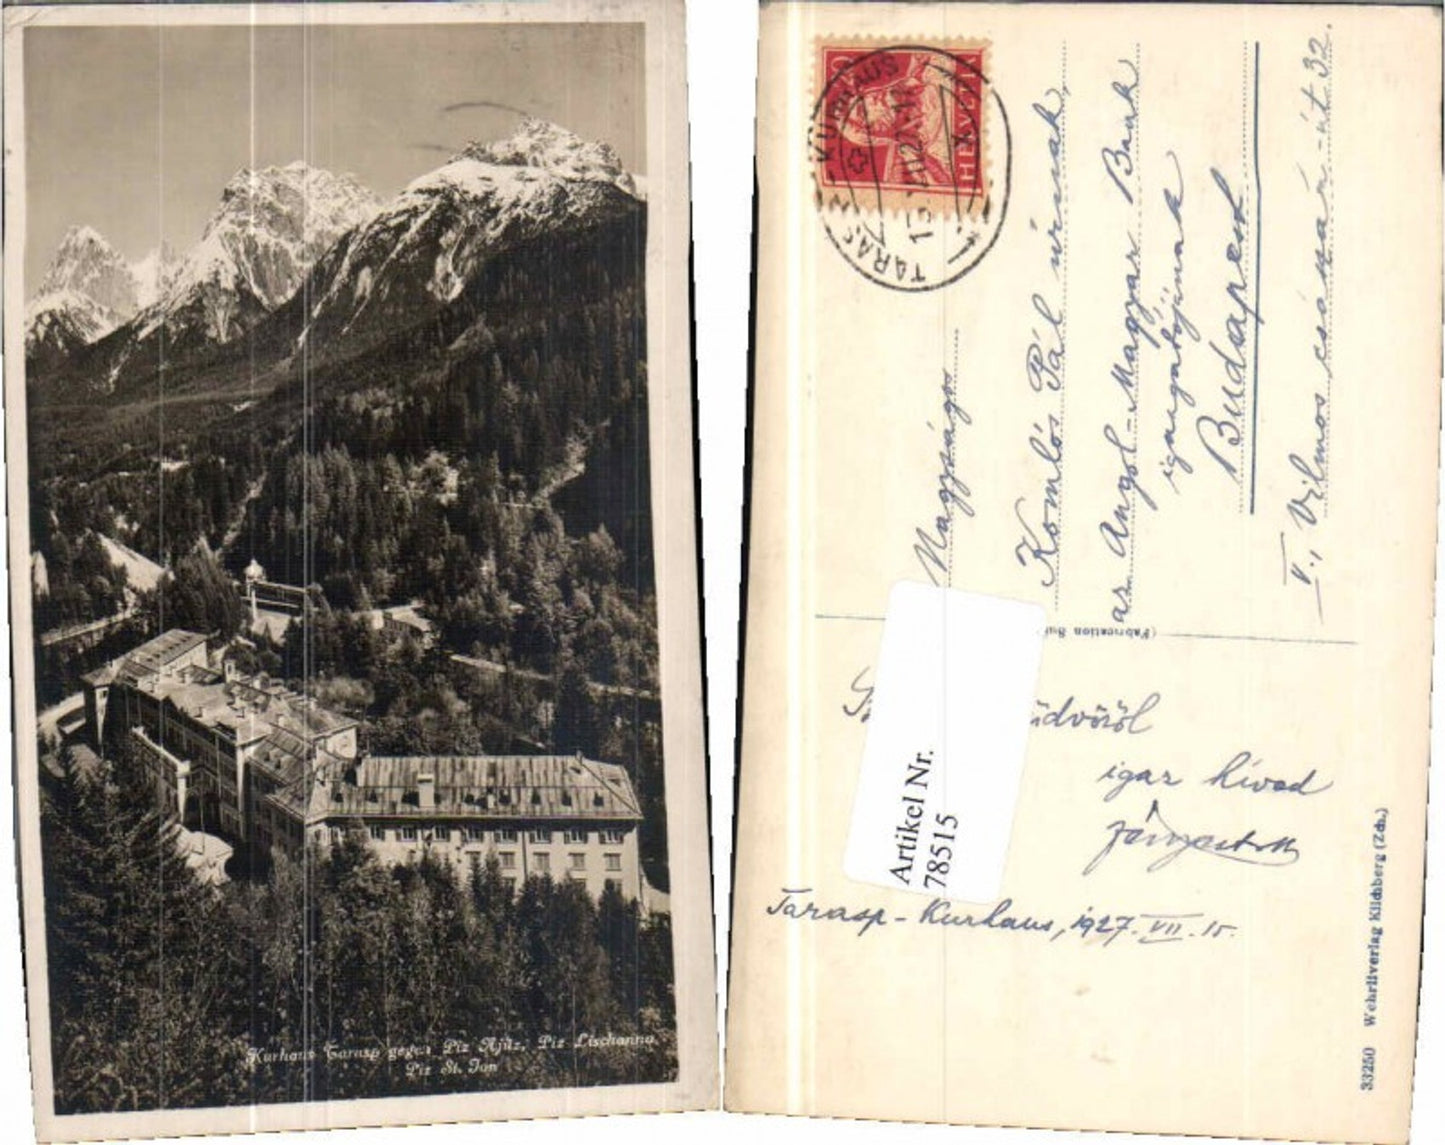 Kurhaus Tarasp gegen Piz Ajüz, Piz Lischanna,
Piz St. Jon
TARASP-KURHAUS
HELVETIA
Nagyságos
Komlós Pál úrnak,
az Angol-Magyar Bank
igazgatójának
Budapest
V., Vilmos császár-út 32.
(Fabrication
üdvözöl
igaz híved
Tarasp-Kurhaus, 1927. VII. 15.
Artikel Nr.
78515
33250 Wehrliverlag Kilchberg (Zch.)